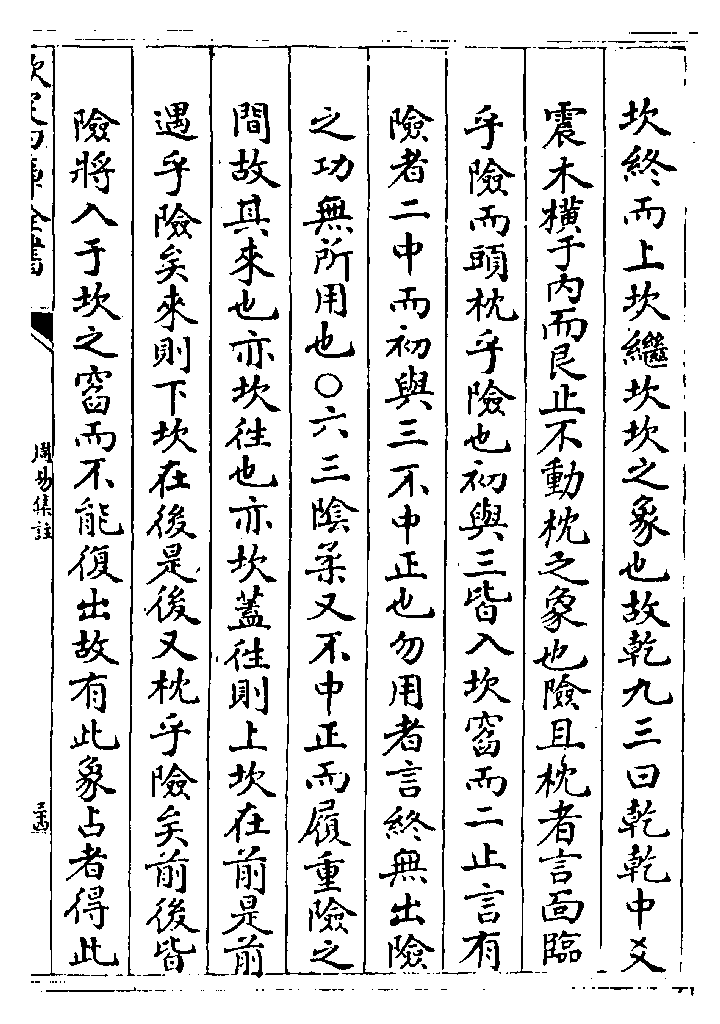 坎終而上坎繼坎坎之象也故乾九三曰乾乾中爻
震木橫于內而艮止不動枕之象也險且枕者言面臨
乎險而頭枕乎險也初與三皆入坎窞而二止言有
險者二中而初與三不中正也勿用者言終無出險
之功無所用也○六三陰柔又不中正而履重險之
間故其來也亦坎徃也亦坎蓋徃則上坎在前是前
遇乎險矣來則下坎在後是後又枕乎險矣前後皆
險將入于坎之窞而不能復出故有此象占者得此
欽定四庫全書
周易集註